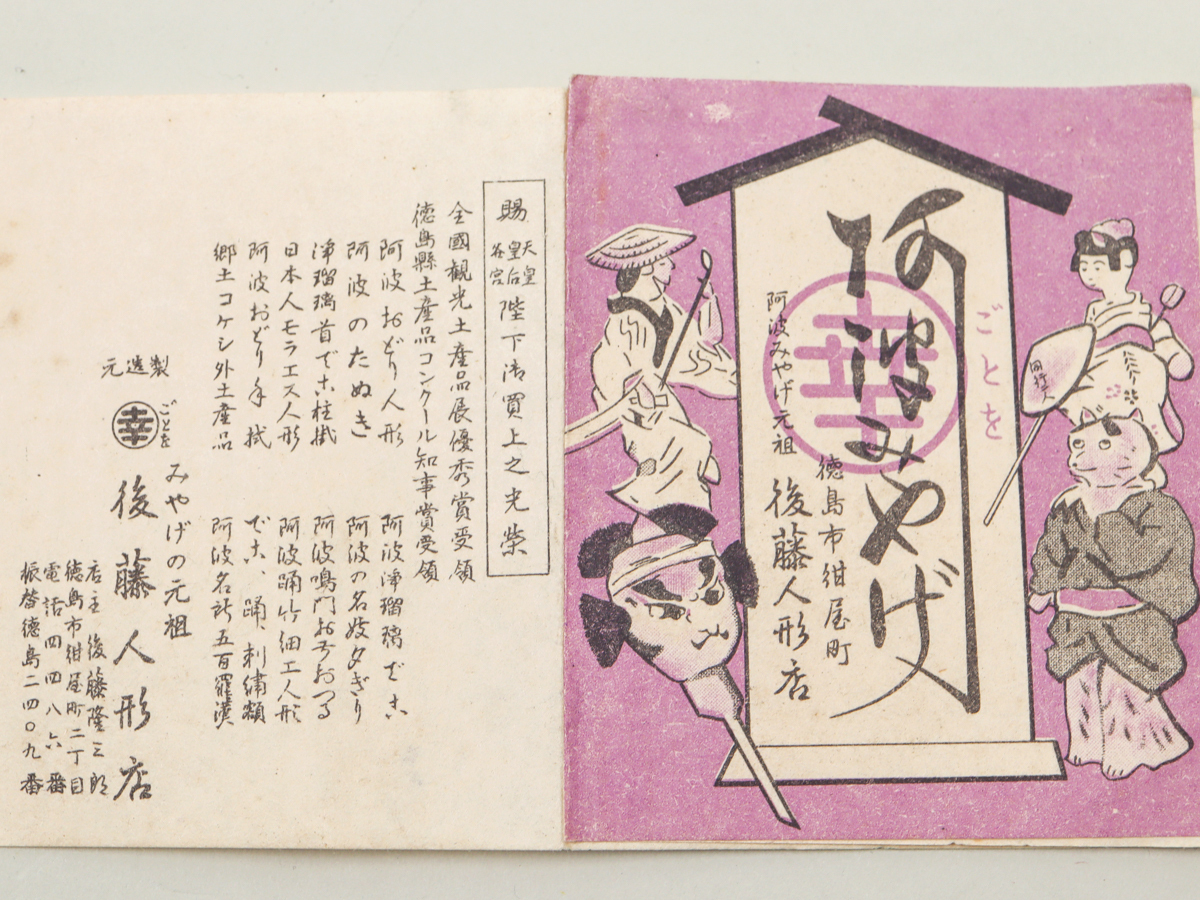 阿波みやげ
ごとを
幸
阿波みやげ元祖
徳島市紺屋町
後藤人形店
同行二人
賜 天皇 皇后 各宮 陛下御買上之光榮
全國観光土産品展優秀賞受領
徳島縣土産品コンクール知事賞受領
阿波おどり人形
阿波浄瑠璃でこ
阿波のたぬき
阿波の名妓夕ぎり
浄瑠璃首でこ柱掛
阿波鳴門お弓おつる
日本人モラエス人形
阿波踊竹細工人形
阿波おどり手拭
でこ、踊、刺繍額
郷土コケシ外土産品
阿波名所五百羅漢
みやげの元祖
製造元
ごとを
幸
後藤人形店
店主 後藤隆三郎
徳島市紺屋町二丁目
電話四四八六番
振替徳島二四〇九番